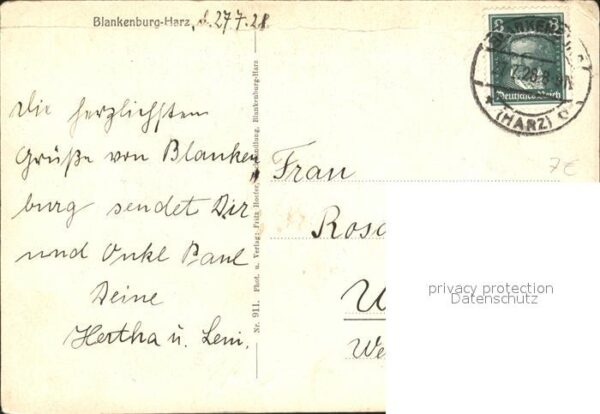 Blankenburg-Harz, d. 27.7.28
Die herzlichsten
Grüße von Blanken
burg sendet Dir
und Onkel Paul
Deine
Hertha u. Leni.
Nr. 911. Phot. u. Verlag: Fritz Hoefer, Buchhandlung, Blankenburg-Harz
8 8
Deutsches Reich
(HARZ)
7€
Frau
privacy protection
Datenschutz